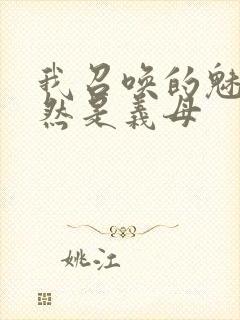 我召唤的魅
然是义母
姚江